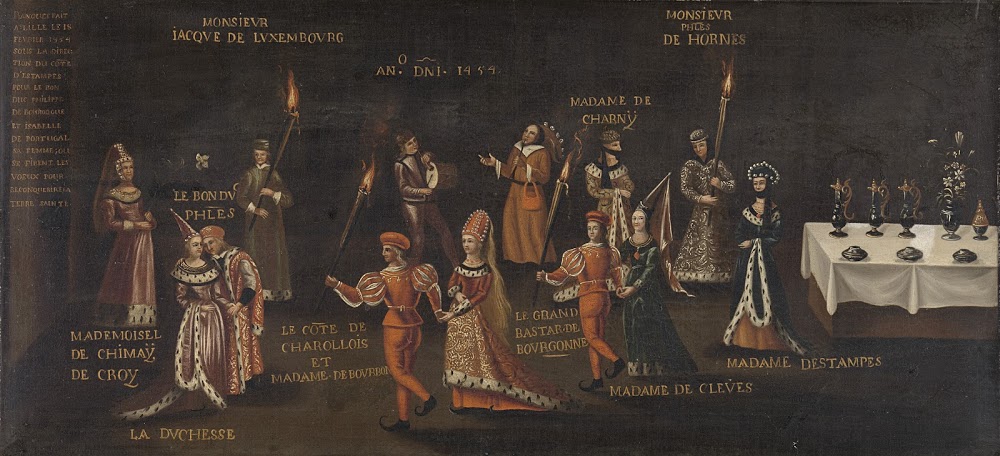 BANQUET FAIT
A LILLE LE 18
FEVRIER 1454
SOUS LA DIREC
TION DU CÔTE
D'ESTAMPES
POUR LE BON
DUC PHILIPPE
DE BOURGOGNE
ET ISABELLE
DE PORTUGAL
SA FEMME, OU
SE FIRENT LES
VOEUX POUR
RECONQUERIR LA
TERRE SAINTE
MONSIEVR
IACQVE DE LVXEMBOVRG
AN.º DÑI. 1454
MONSIEVR
PHLES
DE HORNES
MADAME DE
CHARNŸ
LE BON DV
PHLES
MADEMOISEL
DE CHIMAŸ
DE CROY
LA DVCHESSE
LE CÔTE DE
CHAROLLOIS
ET
MADAME·DE·BOURBON
LE GRAND
BASTAR·DE
BOVRGONNE
MADAME DE CLEVES
MADAME DESTAMPES